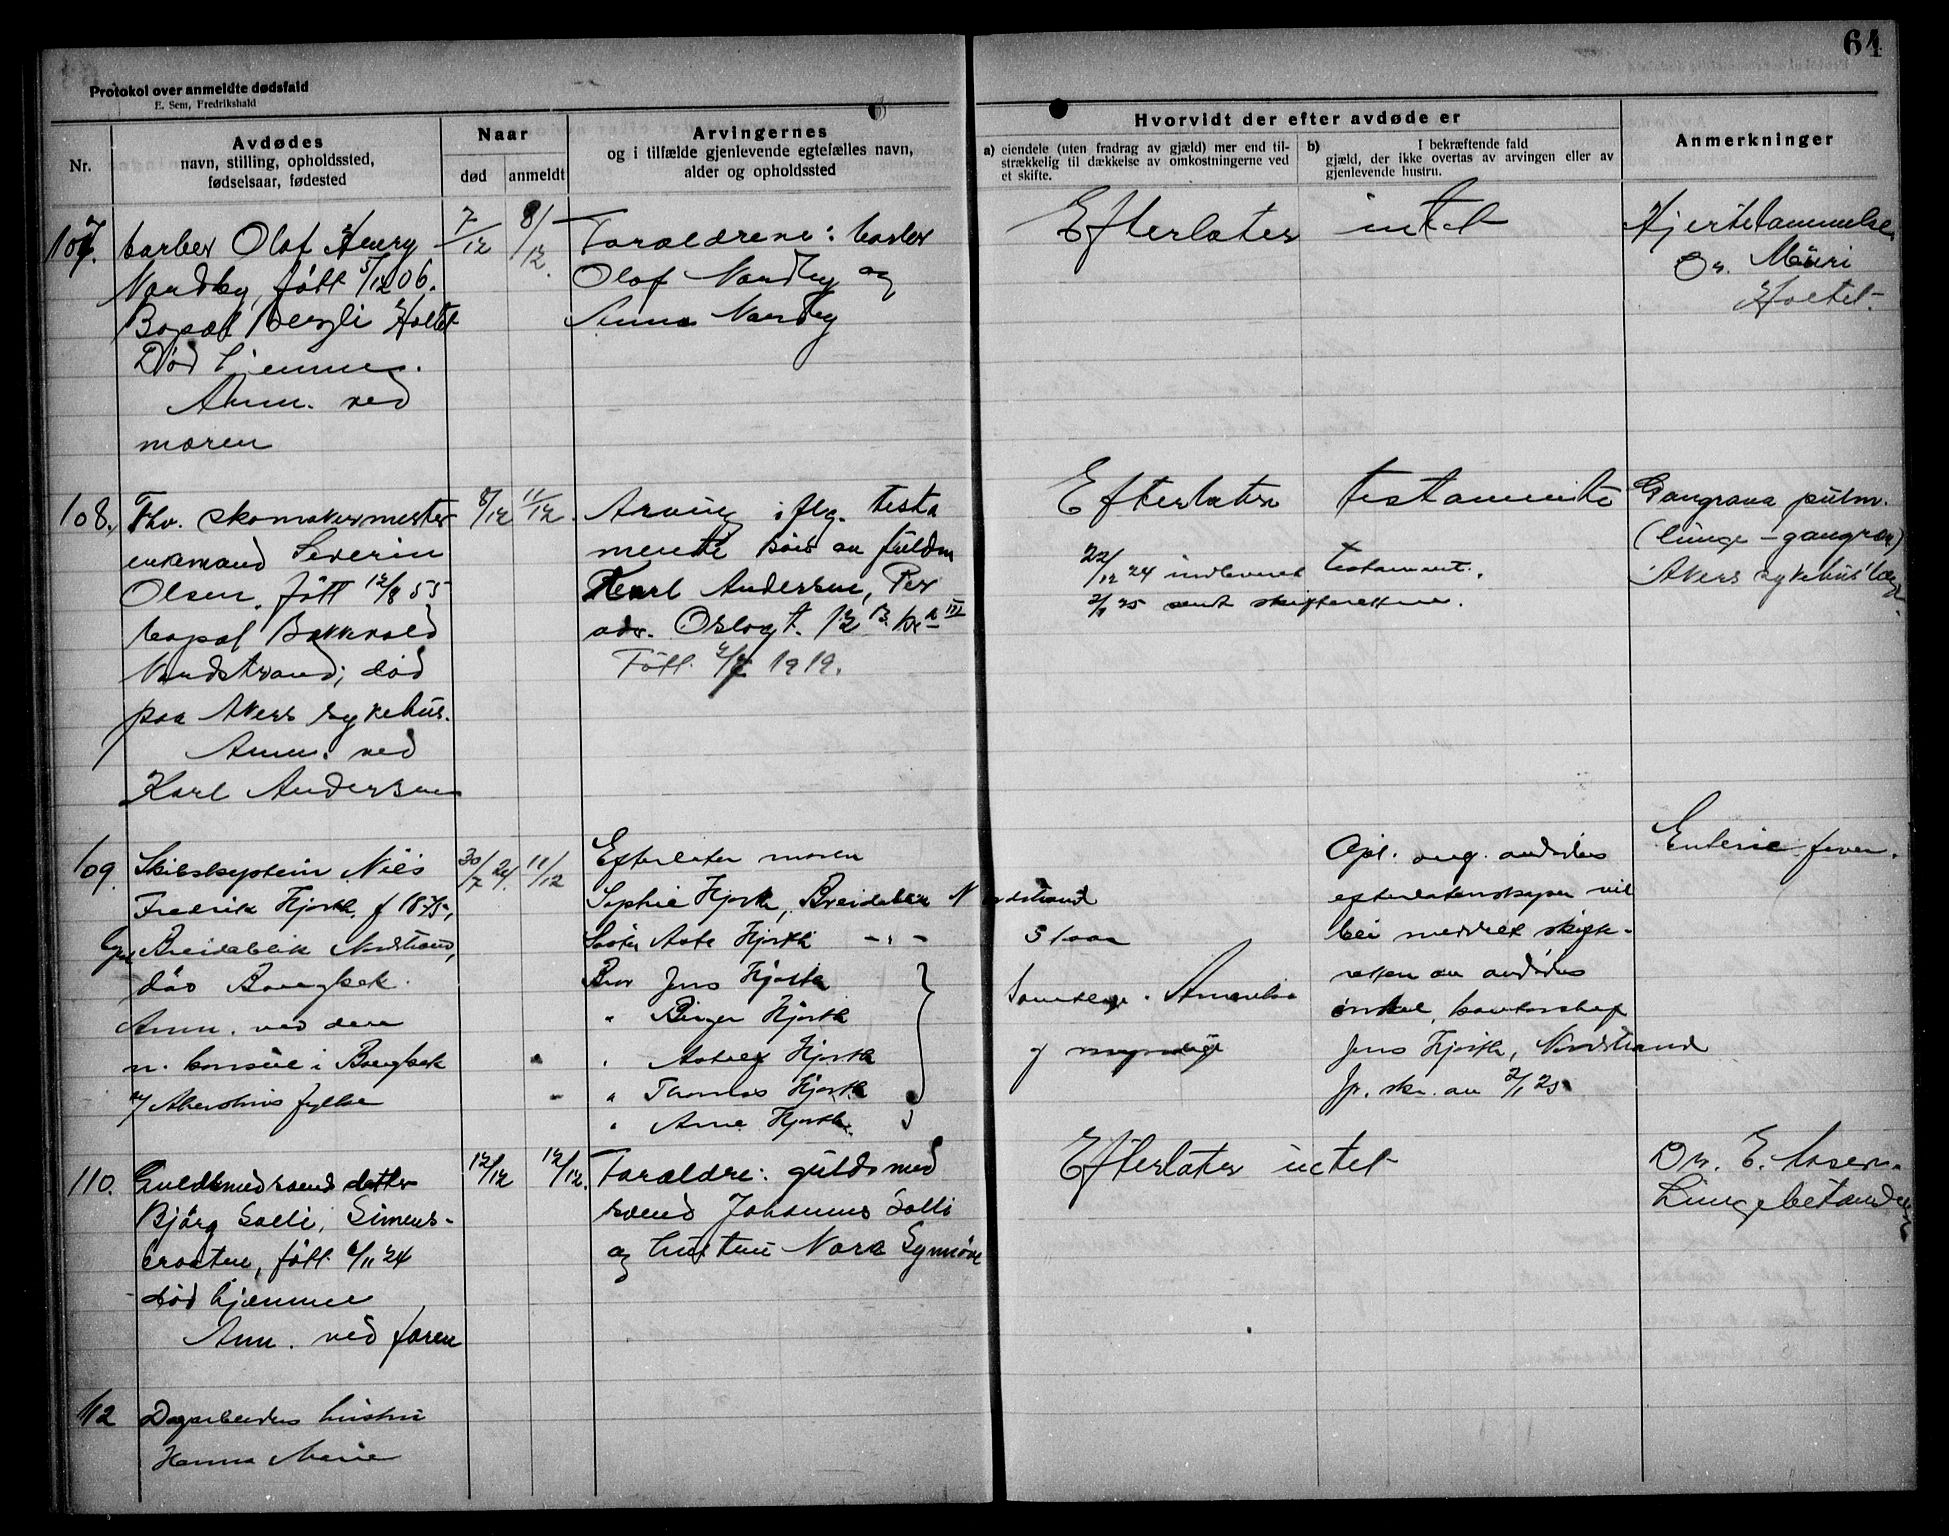 64
Protokol over anmeldte dødsfald
E. Sem, Fredrikshald
Nr.
Avdødes
navn, stilling, opholdssted,
fødselsaar, fødested
Naar
død
anmeldt
Arvingernes
og i tilfælde gjenlevende egtefælles navn,
alder og opholdssted
Hvorvidt der efter avdøde er
a) eiendele (uten fradrag av gjæld) mer end til-
strækkelig til dækkelse av omkostningerne ved
et skifte.
b) I bekræftende fald
gjæld, der ikke overtas av arvingen eller av
gjenlevende hustru.
Anmerkninger
107.
barber Olaf Henry
Nordby, født 5/12 06.
Bopæl Bergli Holtet
Død hjemme.
Anm. ved
moren
7/12
8/12.
Foreldrene: barber
Olaf Nordby og
Anna Nordby
Efterlater intet
Hjertelammelse
Dr. Müri
Holtet
108.
Fhv. skomakermester
enkemand Severin
Olsen, født 12/8 55
bopæl Bakkevold
Nordstrand; død
paa Akers sykehus.
Anm. ved
Karl Andersen
8/12
11/12.
Arving iflg. testa
mente søn av fuldm
Karl Andersen, Per
adr. Oslogt.
Født 1919.
Efterlater testamente
22/12 24 indleveret testament.
2/1 25 sendt skifteretten.
Gangræna pulm.
(lunge-gangræn)
Akers sykehus
109.
Skibskaptein Nils
Fredrik Hjorth, f 1875,
bpl Breidablik Nordstrand,
død Bangkok.
Anm. ved den
n. konsul i Bangkok
g/ Akershus fylke
30/7 24.
11/12
Efterlater moren
Sophie Hjorth, Breidablik Nordstrand
Søster Hjorth - " - 51 aar
Bror Jens Hjorth
" Birger Hjorth
" Hjorth
" Thomas Hjorth
" Arne Hjorth
samtlige i Amerika
og myndige
Opl. ang. avdødes
efterlatenskaper vil
bli meddelt skifte-
retten av avdødes
onkel, kontorchef
Jens Hjorth, Nordstrand
jr. skr. av 2/1 25
Enteric fever.
110.
Guldsmedsvend datter
Bjørg Solli, Simens-
braaten, født 6/11 24
død hjemme
Anm. ved faren
12/12
12/12.
Foreldre: guldsmed
svend Johannes Solli
og hustru Nora Synnøve
Efterlater intet
Dr. E. Aasen.
Lungebetændelse
112
Dagarbeiders hustru
Hanna Marie